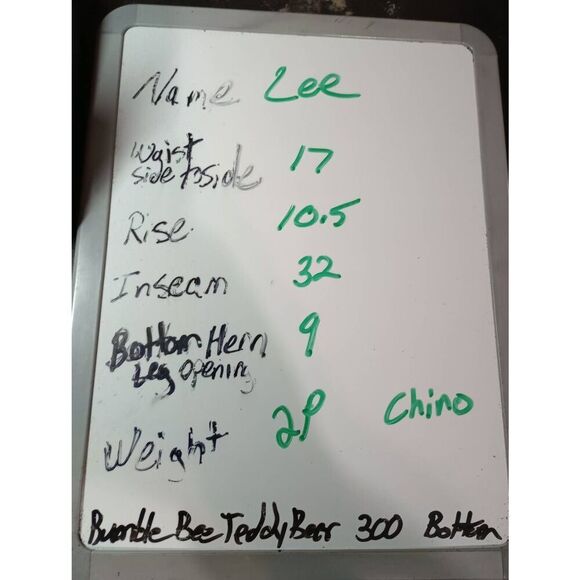 Name Lee
Waist
side to side 17
Rise 10.5
Inseam 32
Bottom Hem 9
Leg Opening
Weight 2P Chino
Bumble Bee Teddy Bear 300 Bottom